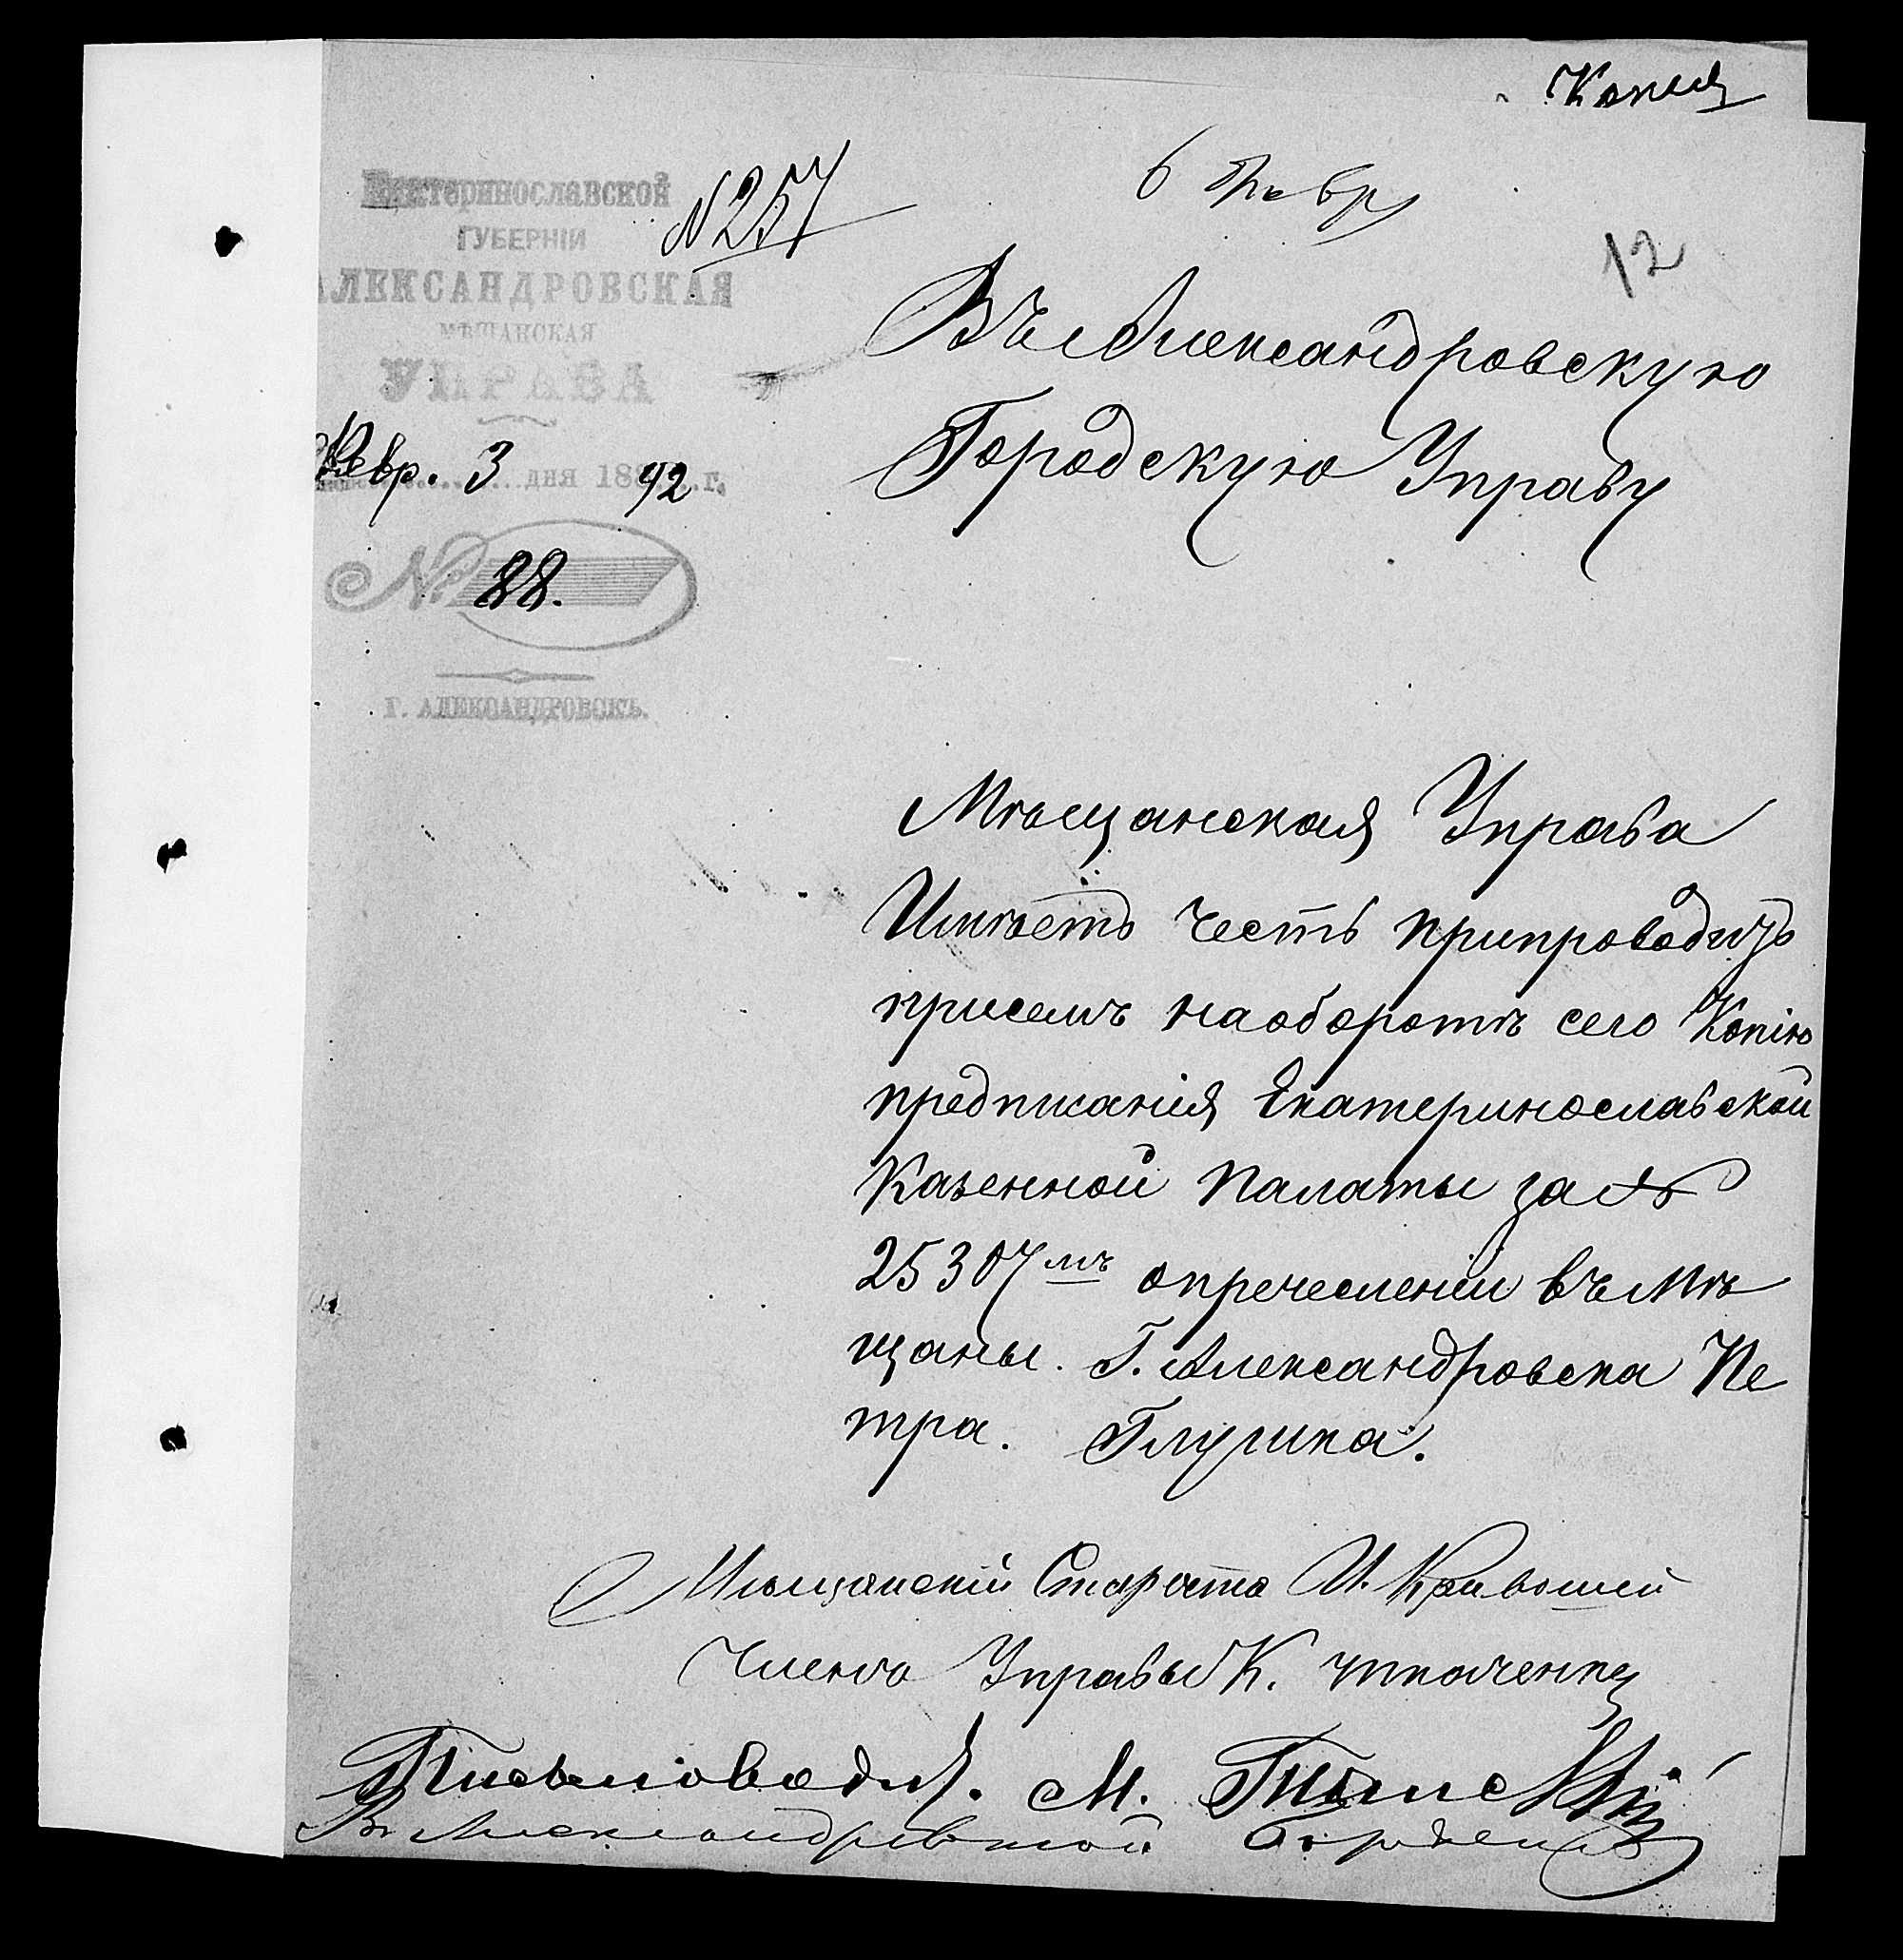 Копия
Екатеринославской
ГУБЕРНІИ
АЛЕКСАНДРОВСКАЯ
МѢЩАНСКАЯ
УПРАВА
Февр. 3 дня 1892 г.
№ 88.
Г. АЛЕКСАНДРОВСКЪ.
№ 257
6 Февр
12
Въ Александровскую
Городскую Управу
Мѣщанская Управа
Имѣетъ честь припроводить
присемъ наоборотѣ сего Копію
предписанія Екатеринославской
Казенной Палаты за №
25307мъ опречесленіи въ Мѣ
щаны. Г. Александровска Пе
тра. Глушка.
Мѣщанскій Староста И. Кривошей
Членъ Управы К.
Письмоводит. М.
В Александровской